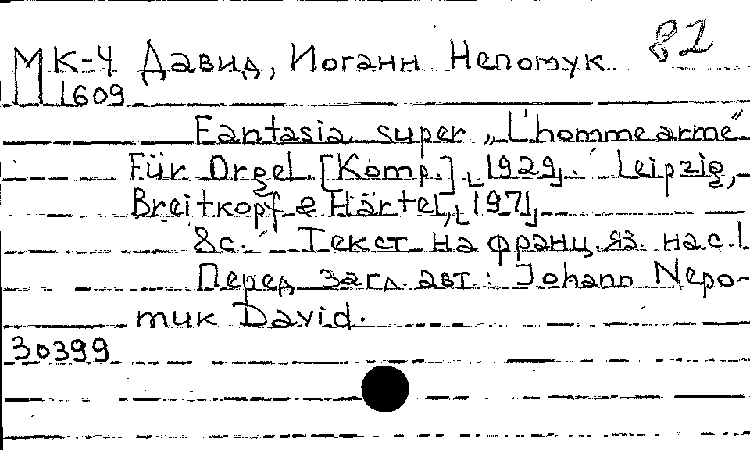 МК-4 Давид, Иоганн Непомук 82
1609
Fantasia super „L'homme armé"
Für Orgel. [Komp.] ⌊1929⌋. Leipzig,
Breitkopf & Härtel, ⌊197⌋
8с. Текст на франц. яз. на с. 1
Перед загл. авт.: Johann Nepo-
muk David.
30399